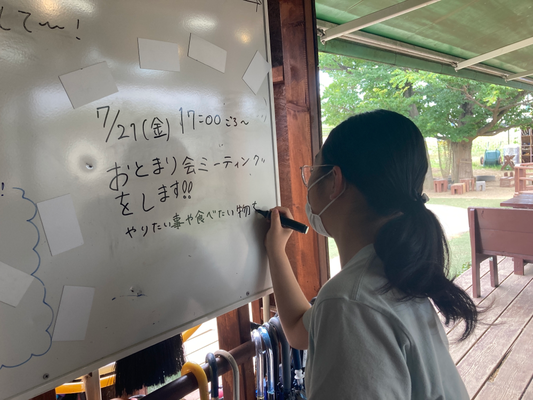 して〜!
7/27(金) 17:00ごろ〜
おとまり会ミーティング
をします!!
やりたい事や食べたい物を
!